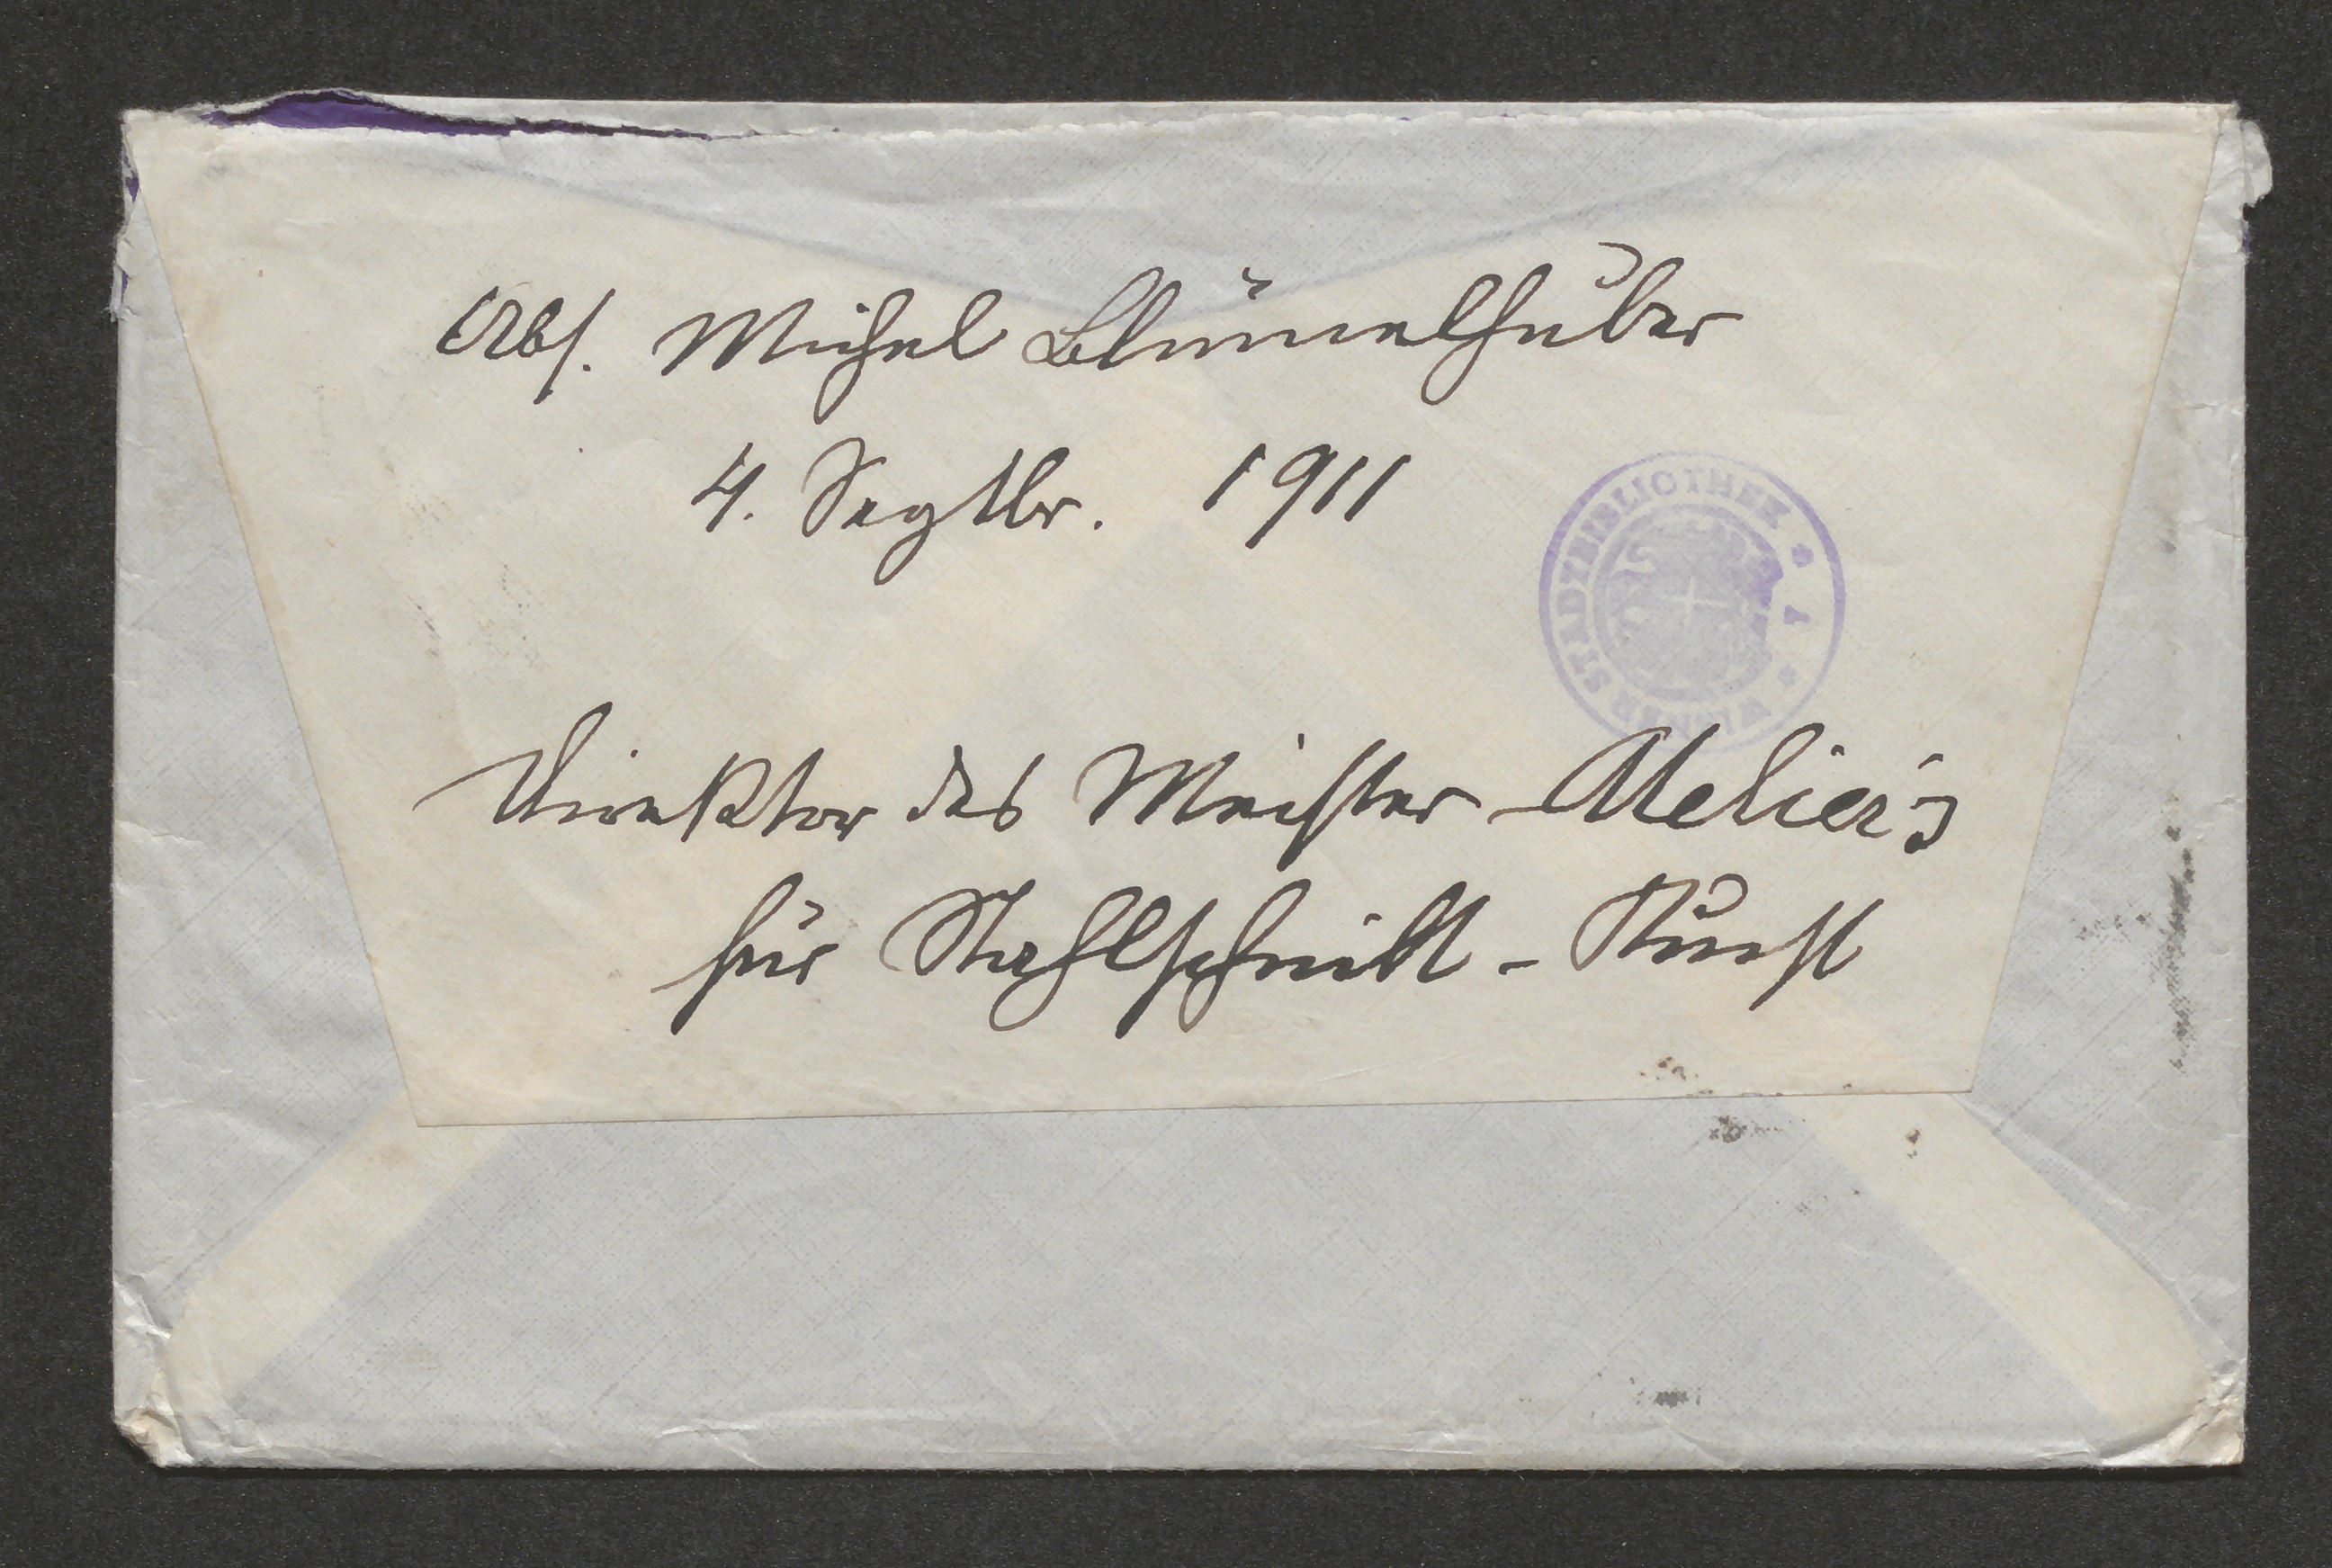 Abs. Michael Blümelhuber
4. Septbr. 1911
WIENER STADTBIBLIOTHEK
Direktor des Meister-Atelier's
für Stahlschnitt-Kunst